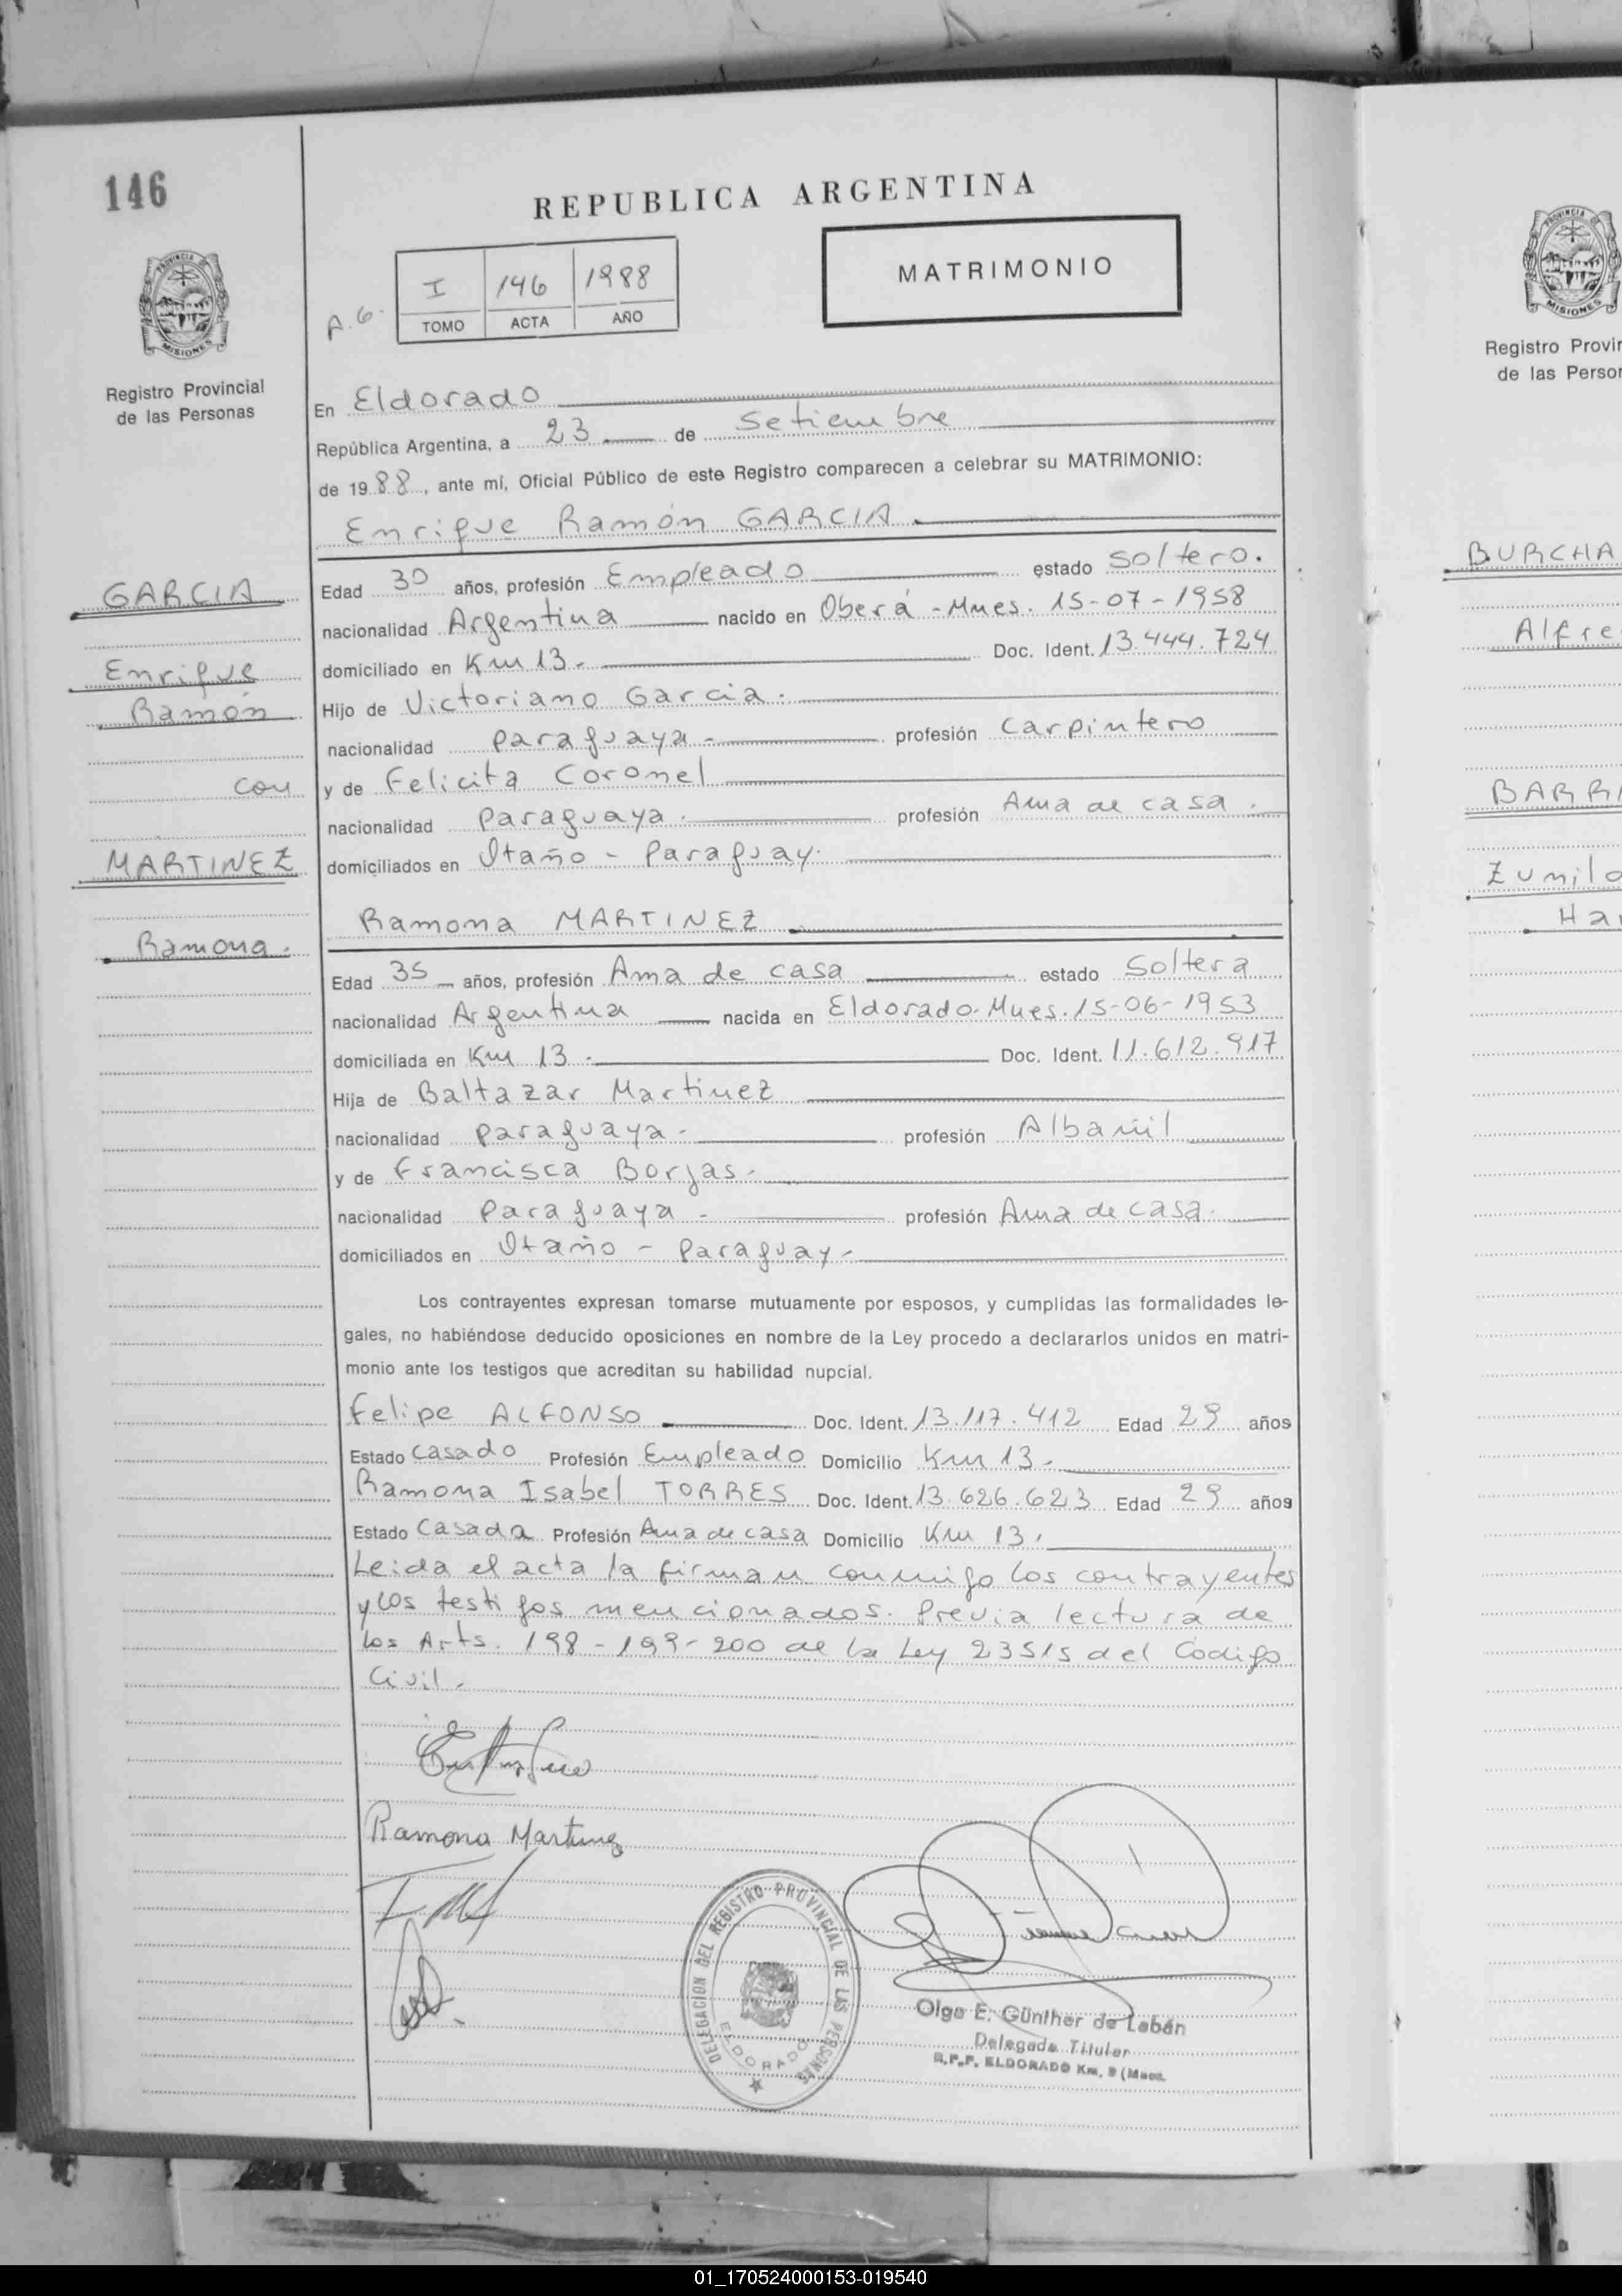 146
REPUBLICA ARGENTINA
PROVINCIA DE
MISIONES
Registro Provincial
de las Personas
A.G.
I 146 1988
TOMO ACTA AÑO
MATRIMONIO
En Eldorado
República Argentina, a 23 de Setiembre
de 1988, ante mí, Oficial Público de este Registro comparecen a celebrar su MATRIMONIO:
Enrique Ramón GARCIA
GARCIA
Enrique
Ramón
con
MARTINEZ
Ramona.
Edad 30 años, profesión Empleado estado Soltero.
nacionalidad Argentina nacido en Oberá - Mnes. 15-07-1958
domiciliado en Km 13. Doc. Ident. 13.444.724
Hijo de Victoriano Garcia.
nacionalidad Paraguaya - profesión Carpintero
y de Felicita Coronel
nacionalidad Paraguaya. profesión Ama de casa.
domiciliados en Otaño - Paraguay.
Ramona MARTINEZ
Edad 35 años, profesión Ama de casa estado Soltera
nacionalidad Argentina nacida en Eldorado-Mnes. 15-06-1953
domiciliada en Km 13. Doc. Ident. 11.612.917
Hija de Baltazar Martinez
nacionalidad Paraguaya - profesión Albañil
y de Francisca Borjas.
nacionalidad Paraguaya - profesión Ama de casa.
domiciliados en Otaño - Paraguay-
Los contrayentes expresan tomarse mutuamente por esposos, y cumplidas las formalidades le-
gales, no habiéndose deducido oposiciones en nombre de la Ley procedo a declararlos unidos en matri-
monio ante los testigos que acreditan su habilidad nupcial.
Felipe ALFONSO Doc. Ident. 13.117.412 Edad 29 años
Estado Casado Profesión Empleado Domicilio Km 13.
Ramona Isabel TORRES Doc. Ident. 13.626.623 Edad 29 años
Estado Casada Profesión Ama de casa Domicilio Km 13.
Leida el acta la firman conmigo los contrayentes
y los testigos mencionados. Previa lectura de
los Arts. 198-199-200 de la Ley 23515 del Codigo
Civil.
Ramona Martinez
DELEGACION DEL REGISTRO PROVINCIAL DE LAS PERSONAS
ELDORADO
Olga E. Günther de Labán
Delegada Titular
R.P.P. ELDORADO Km. 9 (Mnes.
PROVINCIA
MISIONES
Registro Provin
de las Person
BURCHA
Alfre
BARRI
Zunil
Ha
01_170524000153-019540